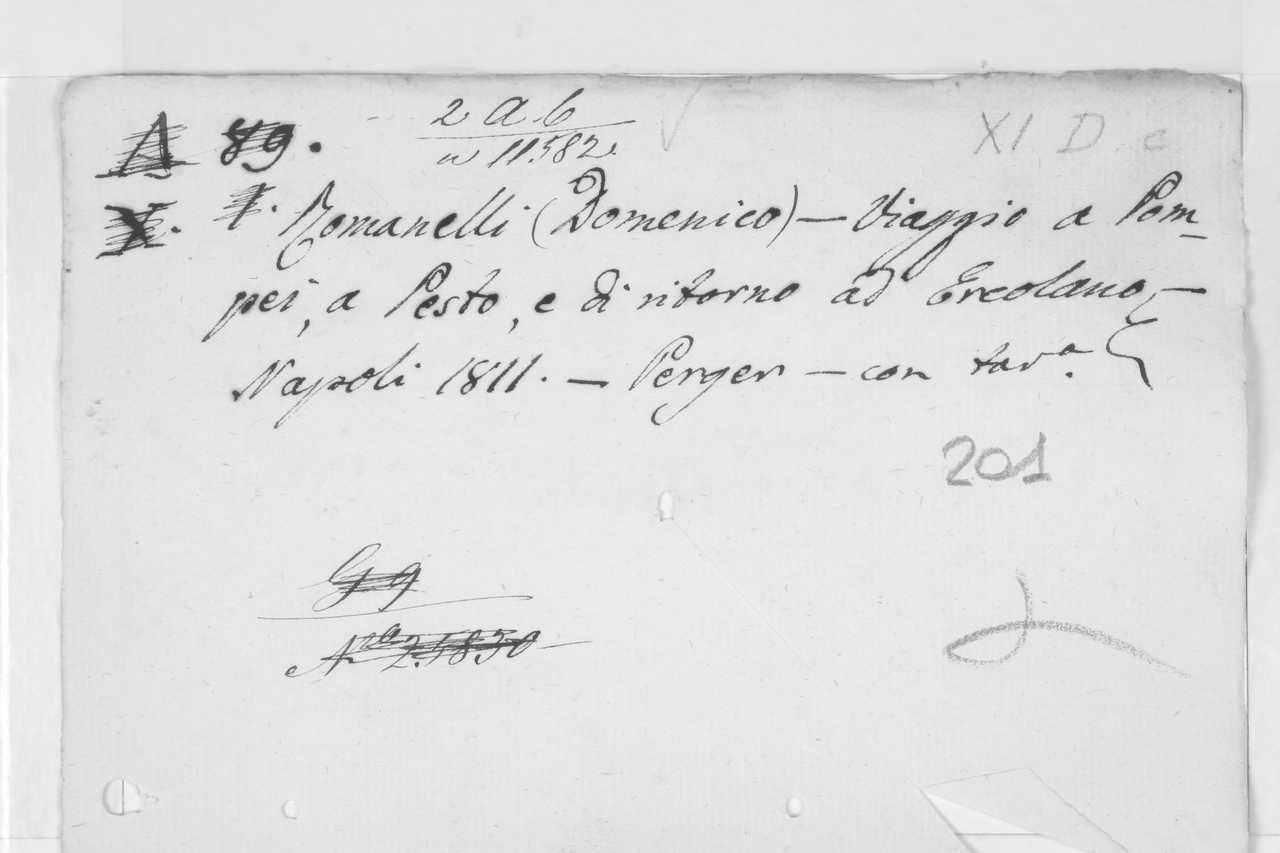 A 89. 2 a b XI D. c
n 11582.
X. 1. Romanelli (Domenico) — Viaggio a Pom-
pei, a Pesto, e di ritorno ad Ercolano —
Napoli 1811. — Perger — con tav.ª
201
G 9